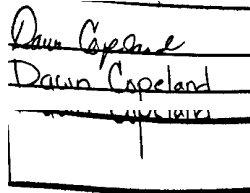 Dawn Copeland
Dawn Copeland